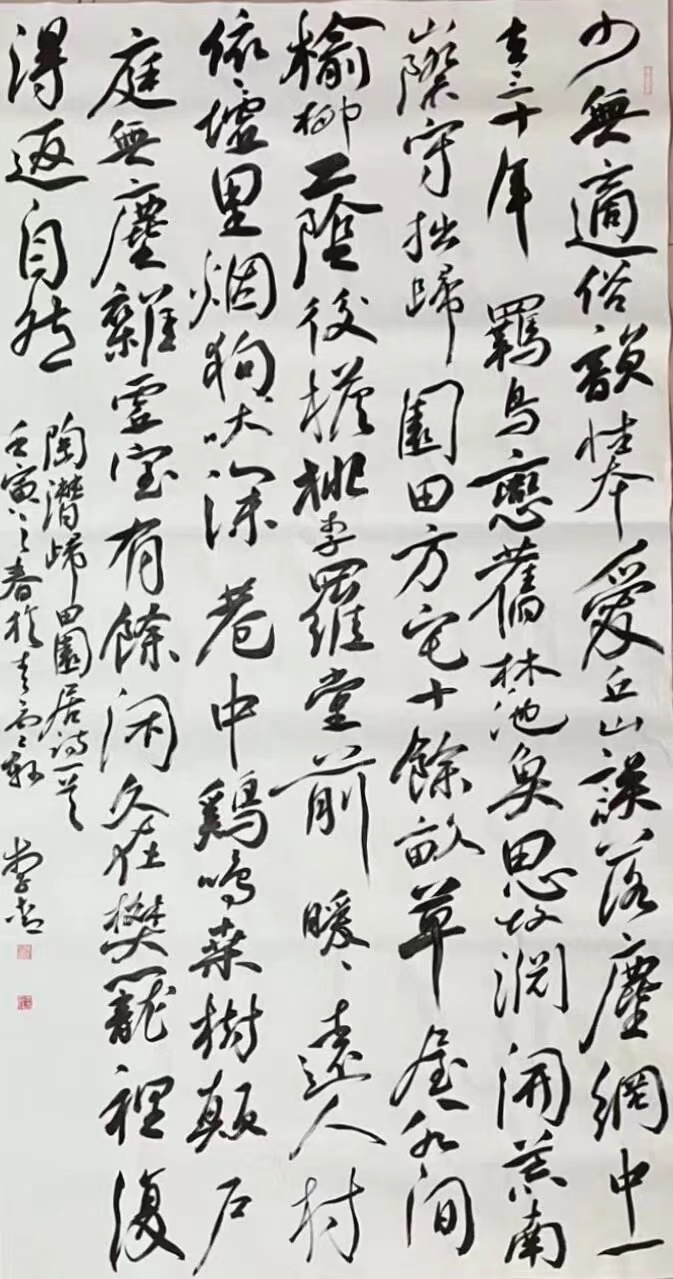 少無適俗韻性本愛丘山誤落塵網中一
去三十年羈鳥戀舊林池魚思故淵開荒南
山際守拙歸園田方宅十餘畝草屋八九間
榆柳蔭後檐桃李羅堂前暖、遠人村
依、墟里烟狗吠深巷中鷄鳴桑樹顛户
庭無塵雜虛室有餘閑久在樊籠裡復
得返自然
陶潛歸田園居詩一首
壬寅之春於青雲軒 李